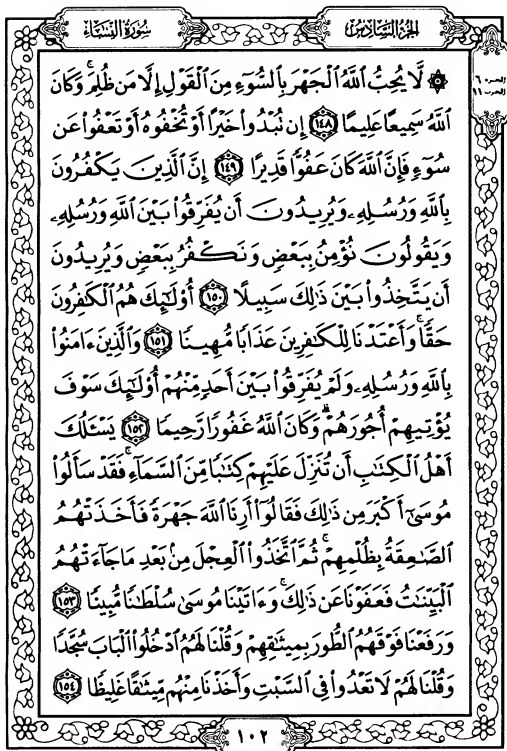 سُورَةُ النِّسَاءِ
الجُزْءُ السَّادِسُ
الحزب ٦
الحزب ١١
۞ لَّا يُحِبُّ ٱللَّهُ ٱلْجَهْرَ بِٱلسُّوٓءِ مِنَ ٱلْقَوْلِ إِلَّا مَن ظُلِمَ ۚ وَكَانَ
ٱللَّهُ سَمِيعًا عَلِيمًا ١٤٨ إِن تُبْدُوا۟ خَيْرًا أَوْ تُخْفُوهُ أَوْ تَعْفُوا۟ عَن
سُوٓءٍ فَإِنَّ ٱللَّهَ كَانَ عَفُوًّا قَدِيرًا ١٤٩ إِنَّ ٱلَّذِينَ يَكْفُرُونَ
بِٱللَّهِ وَرُسُلِهِۦ وَيُرِيدُونَ أَن يُفَرِّقُوا۟ بَيْنَ ٱللَّهِ وَرُسُلِهِۦ
وَيَقُولُونَ نُؤْمِنُ بِبَعْضٍ وَنَكْفُرُ بِبَعْضٍ وَيُرِيدُونَ
أَن يَتَّخِذُوا۟ بَيْنَ ذَٰلِكَ سَبِيلًا ١٥٠ أُو۟لَٰٓئِكَ هُمُ ٱلْكَٰفِرُونَ
حَقًّا ۚ وَأَعْتَدْنَا لِلْكَٰفِرِينَ عَذَابًا مُّهِينًا ١٥١ وَٱلَّذِينَ ءَامَنُوا۟
بِٱللَّهِ وَرُسُلِهِۦ وَلَمْ يُفَرِّقُوا۟ بَيْنَ أَحَدٍ مِّنْهُمْ أُو۟لَٰٓئِكَ سَوْفَ
يُؤْتِيهِمْ أُجُورَهُمْ ۗ وَكَانَ ٱللَّهُ غَفُورًا رَّحِيمًا ١٥٢ يَسْـَٔلُكَ
أَهْلُ ٱلْكِتَٰبِ أَن تُنَزِّلَ عَلَيْهِمْ كِتَٰبًا مِّنَ ٱلسَّمَآءِ ۚ فَقَدْ سَأَلُوا۟
مُوسَىٰٓ أَكْبَرَ مِن ذَٰلِكَ فَقَالُوٓا۟ أَرِنَا ٱللَّهَ جَهْرَةً فَأَخَذَتْهُمُ
ٱلصَّٰعِقَةُ بِظُلْمِهِمْ ۚ ثُمَّ ٱتَّخَذُوا۟ ٱلْعِجْلَ مِنۢ بَعْدِ مَا جَآءَتْهُمُ
ٱلْبَيِّنَٰتُ فَعَفَوْنَا عَن ذَٰلِكَ ۚ وَءَاتَيْنَا مُوسَىٰ سُلْطَٰنًا مُّبِينًا ١٥٣
وَرَفَعْنَا فَوْقَهُمُ ٱلطُّورَ بِمِيثَٰقِهِمْ وَقُلْنَا لَهُمُ ٱدْخُلُوا۟ ٱلْبَابَ سُجَّدًا
وَقُلْنَا لَهُمْ لَا تَعْدُوا۟ فِى ٱلسَّبْتِ وَأَخَذْنَا مِنْهُم مِّيثَٰقًا غَلِيظًا ١٥٤
١٠٢